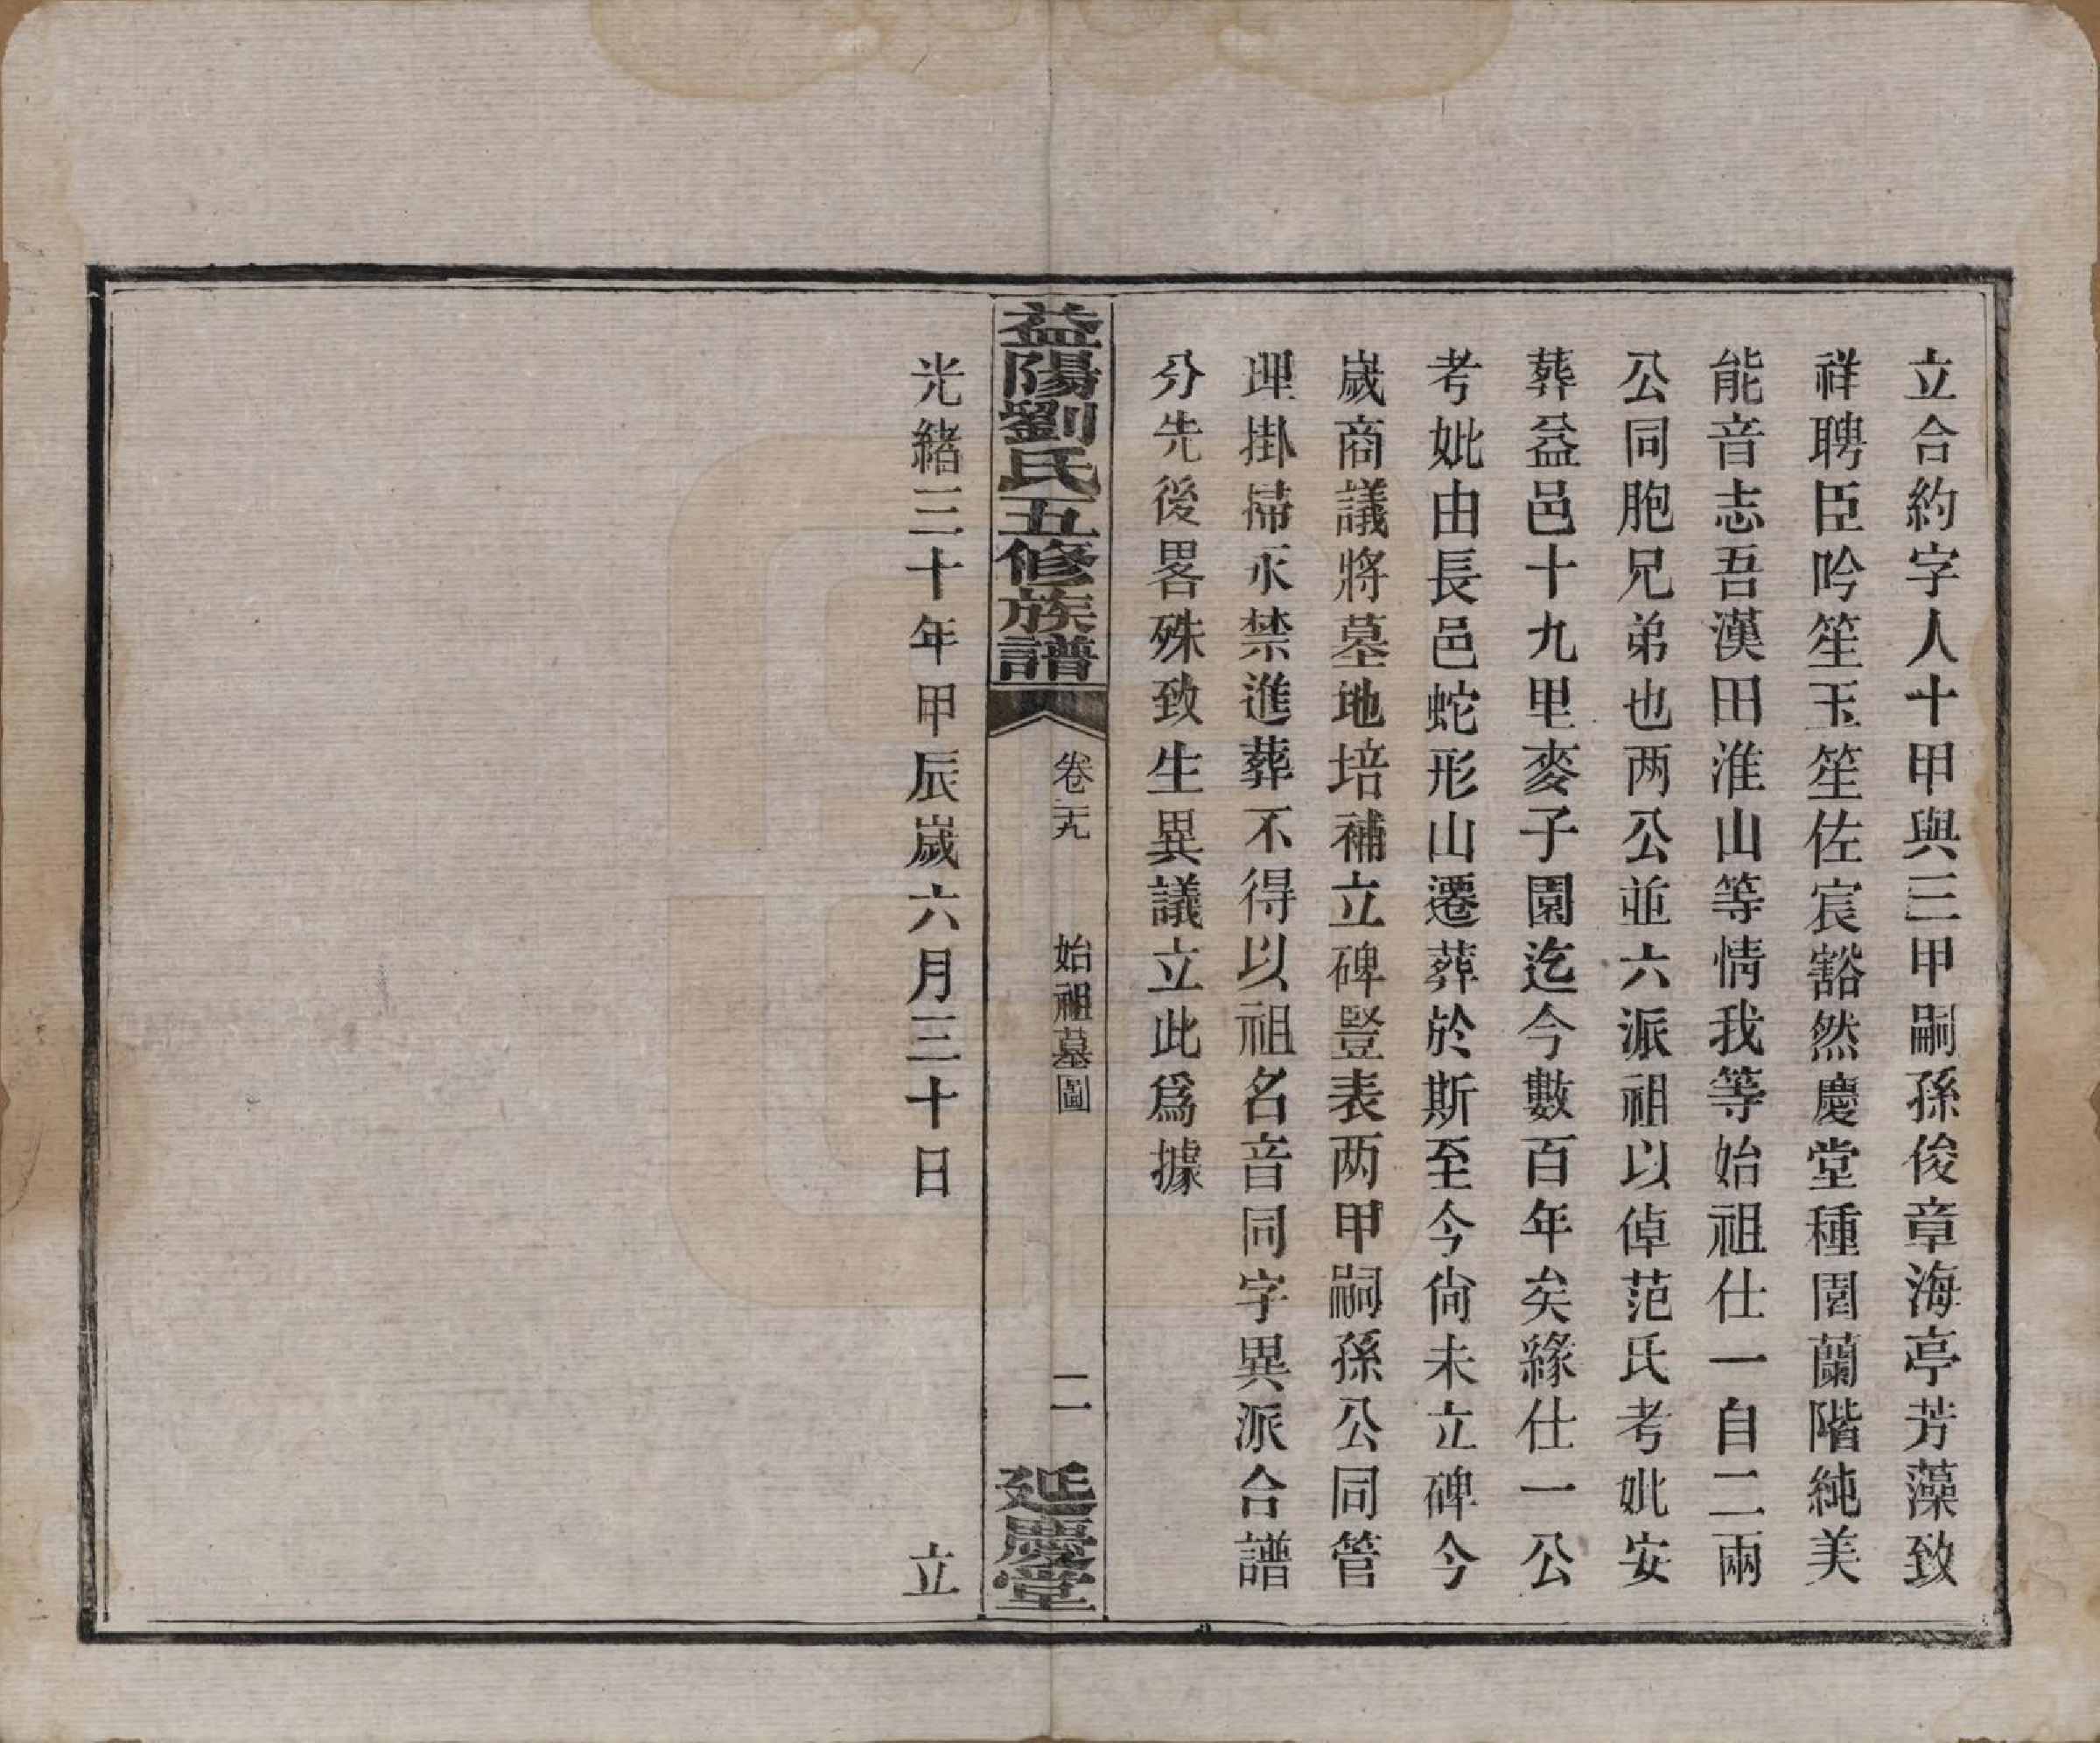 立合約字人十甲與三甲嗣孫俊章海亭芳藻致
祥聘臣吟笙玉笙佐宸豁然慶堂種園蘭階純美
能音志吾漢田淮山等情我等始祖仕一自二兩
公同胞兄弟也两公並六派祖以倬范氏考妣安
葬益邑十九里麥子園迄今數百年矣緣仕一公
考妣由長邑蛇形山遷葬於斯至今尙未立碑今
歲商議將墓地培補立碑豎表两甲嗣孫公同管
理掛掃永禁進葬不得以祖名音同字異派合譜
分先後畧殊致生異議立此爲據
益陽劉氏五修族譜
卷二十九
始祖墓圖
二
延慶堂
光緒三十年甲辰歲六月三十日 立